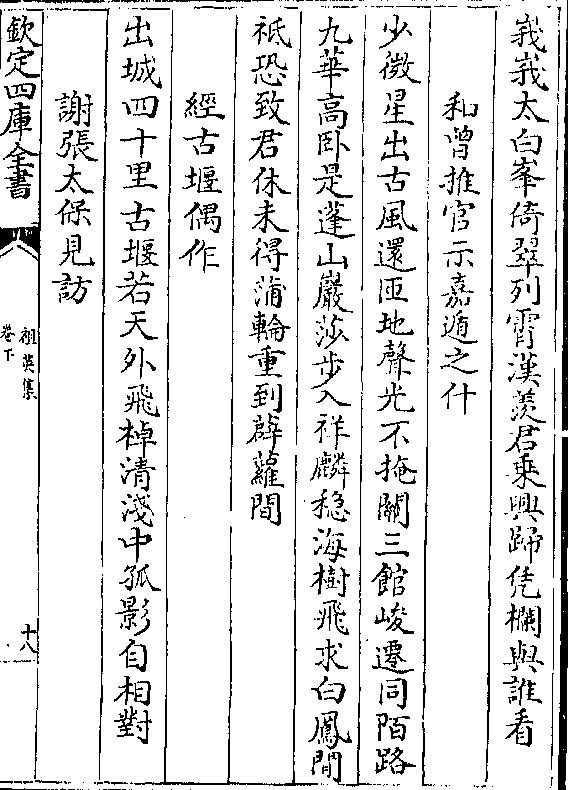 峩峩太白峯倚翠列霄漢羨君乗興歸凭欄與誰看
和曾推官示嘉遁之什
少微星出古風還匝地聲光不掩關三館峻遷同陌路
九華高卧是蓬山巖莎步入祥麟穏海樹飛求白鳳閒
祗恐致君休未得蒲輪重到薜蘿間
經古堰偶作
出城四十里古堰若天外飛棹清淺中孤影自相對
謝張太保見訪
欽定四庫全書
祖英集
卷下
十八